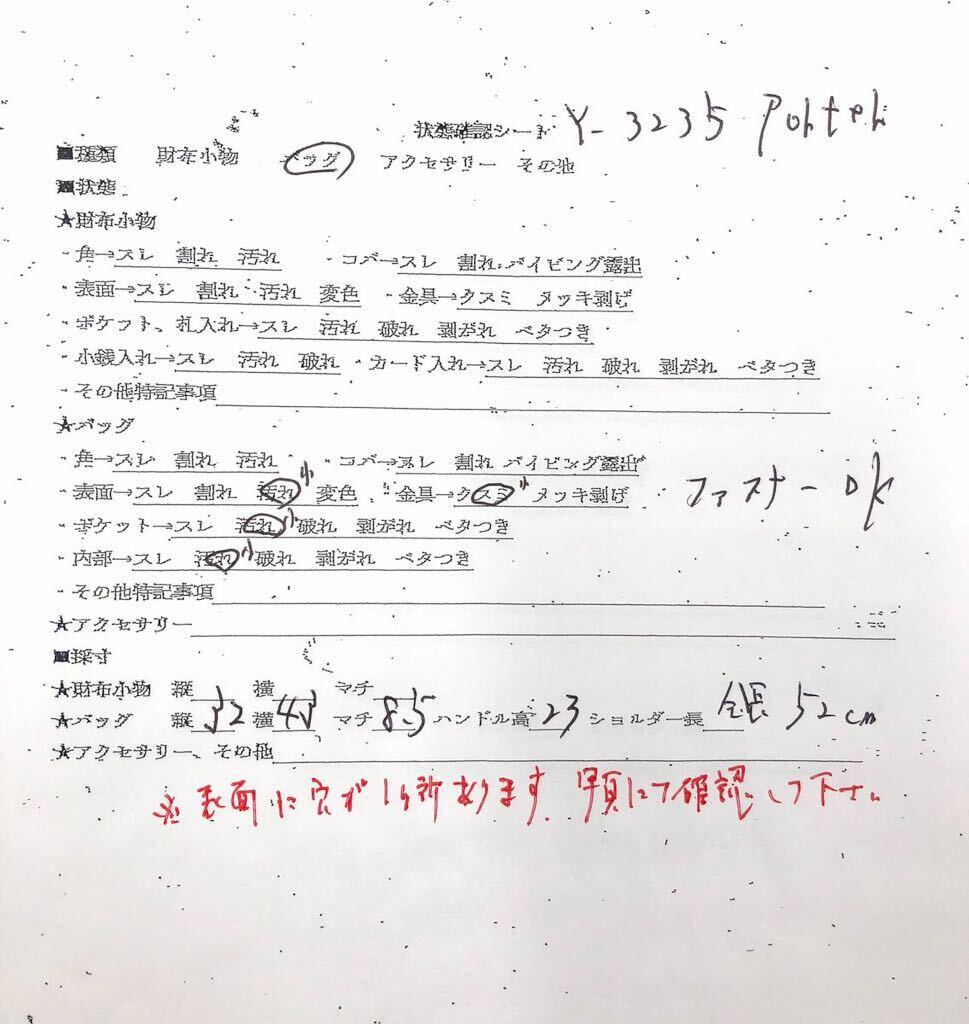 状態確認シート Y-3235 Porter
■種類 財布小物 バッグ アクセサリー その他
■状態
★財布小物
・角→スレ 割れ 汚れ ・コバ→スレ 割れ パイピング露出
・表面→スレ 割れ 汚れ 変色 ・金具→クスミ メッキ剥げ
・ポケット、札入れ→スレ 汚れ 破れ 剥がれ ベタつき
・小銭入れ→スレ 汚れ 破れ ・カード入れ→スレ 汚れ 破れ 剥がれ ベタつき
・その他特記事項
★バッグ
・角→スレ 割れ 汚れ ・コバ→スレ 割れ パイピング露出
・表面→スレ 割れ 汚れ小 変色 ・金具→クスミ小 メッキ剥げ ファスナーOK
・ポケット→スレ 汚れ小 破れ 剥がれ ベタつき
・内部→スレ 汚れ小 破れ 剥がれ ベタつき
・その他特記事項
★アクセサリー
■採寸
★財布小物 縦 横 マチ
★バッグ 縦32 横43 マチ8.5 ハンドル高23 ショルダー長 全長 52cm
★アクセサリー、その他
※表面に穴が1ヶ所あります 写真にて確認して下さい